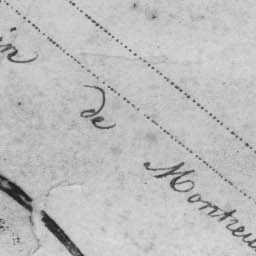 in de Montreu